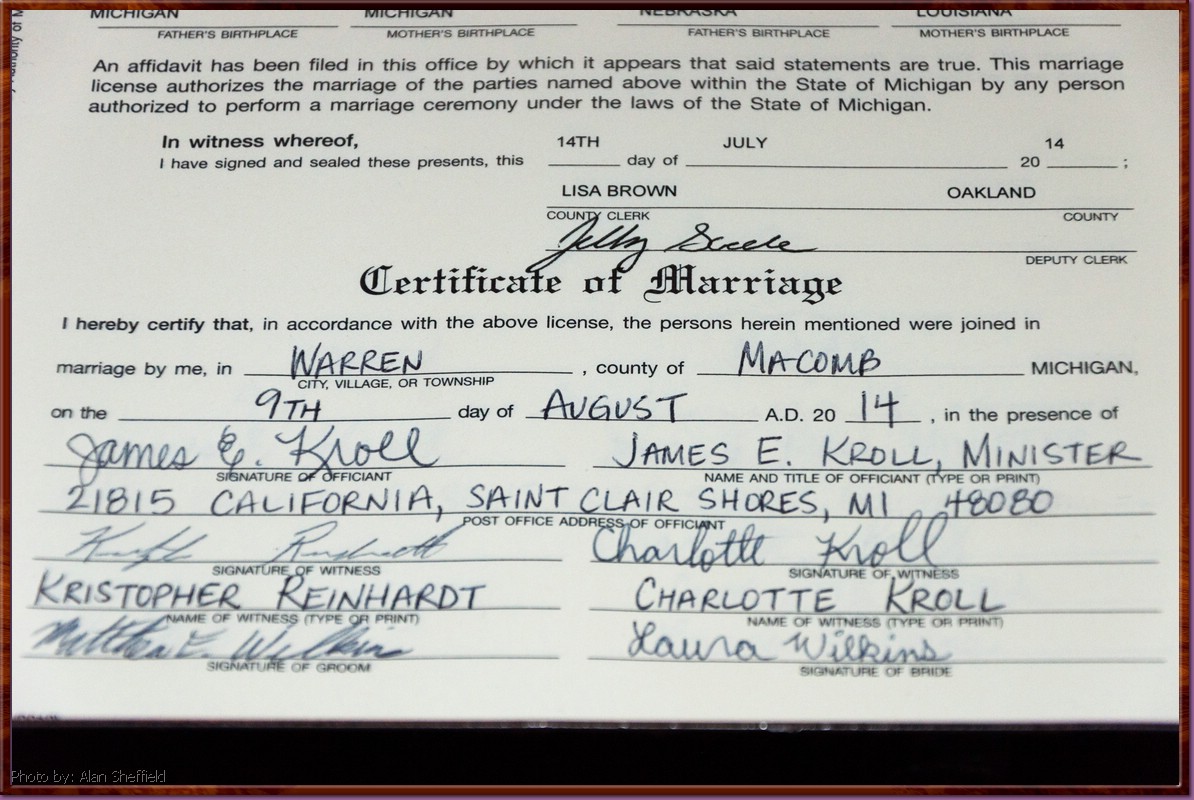 MICHIGAN MICHIGAN NEBRASKA LOUISIANA
FATHER'S BIRTHPLACE MOTHER'S BIRTHPLACE FATHER'S BIRTHPLACE MOTHER'S BIRTHPLACE
An affidavit has been filed in this office by which it appears that said statements are true. This marriage
license authorizes the marriage of the parties named above within the State of Michigan by any person
authorized to perform a marriage ceremony under the laws of the State of Michigan.
In witness whereof,
I have signed and sealed these presents, this 14TH day of JULY 20 14 ;
LISA BROWN OAKLAND
COUNTY CLERK COUNTY
DEPUTY CLERK
Certificate of Marriage
I hereby certify that, in accordance with the above license, the persons herein mentioned were joined in
marriage by me, in WARREN , county of MACOMB MICHIGAN,
CITY, VILLAGE, OR TOWNSHIP
on the 9TH day of AUGUST A.D. 20 14 , in the presence of
James E. Kroll JAMES E. KROLL, MINISTER
SIGNATURE OF OFFICIANT NAME AND TITLE OF OFFICIANT (TYPE OR PRINT)
21815 CALIFORNIA, SAINT CLAIR SHORES, MI 48080
POST OFFICE ADDRESS OF OFFICIANT
Charlotte Kroll
SIGNATURE OF WITNESS SIGNATURE OF WITNESS
KRISTOPHER REINHARDT CHARLOTTE KROLL
NAME OF WITNESS (TYPE OR PRINT) NAME OF WITNESS (TYPE OR PRINT)
E. Wilkins Laura Wilkins
SIGNATURE OF GROOM SIGNATURE OF BRIDE
Photo by: Alan Sheffield